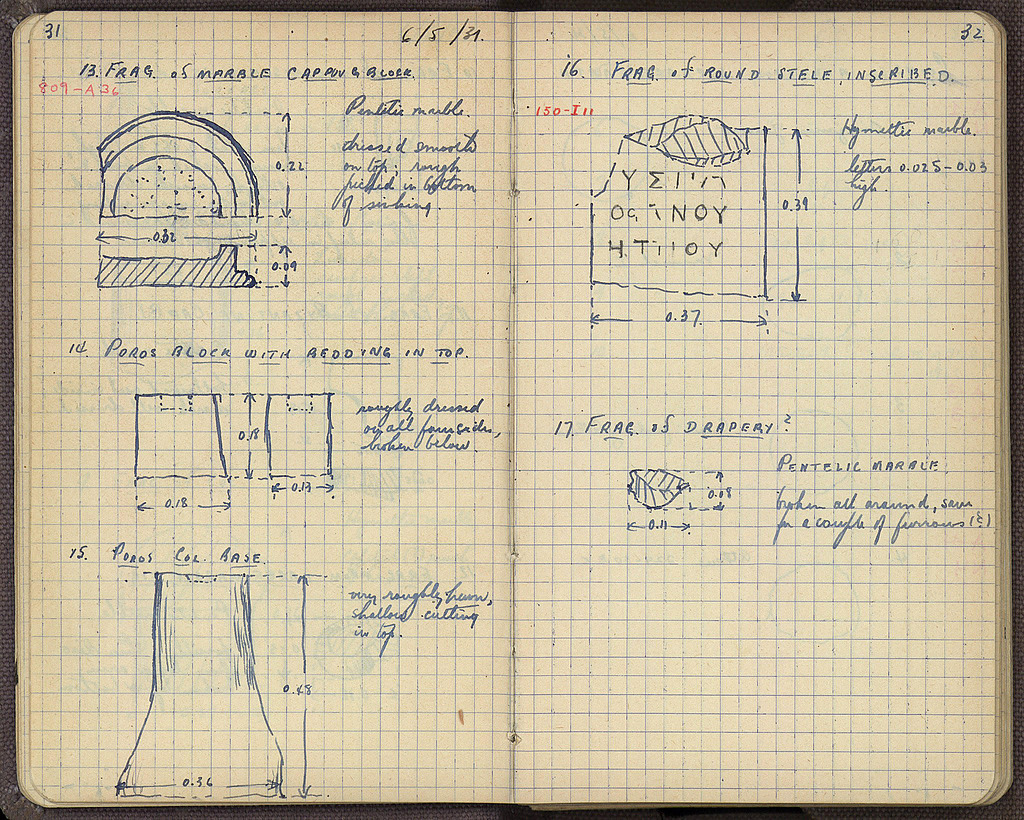 31
6/5/31.
13. FRAG. of MARBLE CAPPING BLOCK.
809-A36
Pentelic marble.
dressed smooth
on top; rough
picked in bottom
of sinking.
0.22
0.32
0.09
14. POROS BLOCK WITH BEDDING IN TOP.
roughly dressed
on all four sides,
broken below.
0.18
0.18
0.13
15. POROS COL. BASE.
very roughly hewn,
shallow cutting
in top.
0.48
0.36
32.
16. FRAG. of ROUND STELE, INSCRIBED.
150-I11
Hymettic marble.
letters 0.025-0.03
high.
0.39
ΙΝΟΥ
ΟΥ
0.37
17. FRAG. of DRAPERY?
PENTELIC MARBLE
broken all around, save
for a couple of furrows (?)
0.08
0.11